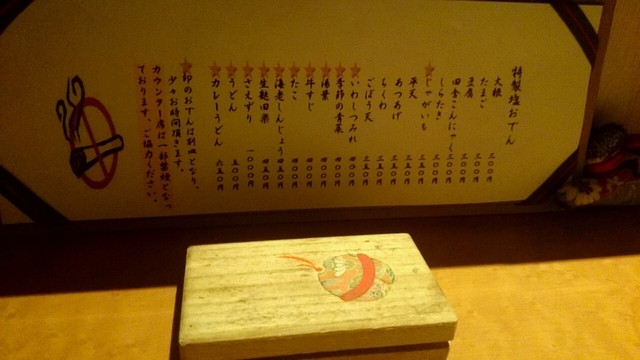 特製塩おでん
大根 三〇〇円
たまご 三〇〇円
豆腐 三〇〇円
田舎こんにゃく 三〇〇円
しらたき 三〇〇円
★じゃがいも 三五〇円
平天 三五〇円
あつあげ 三五〇円
ちくわ 三五〇円
ごぼう天 三五〇円
★いわしつみれ 四五〇円
★季節の青菜 四〇〇円
★湯葉 四〇〇円
★牛すじ 四〇〇円
★たこ 四〇〇円
★海老しんじょう 四五〇円
★生麩田楽 四五〇円
★さえずり 一〇〇〇円
★うどん 五〇〇円
★カレーうどん 六五〇円
★印のおでんは別皿となり、
少々お時間頂きます。
カウンター席は一部禁煙となっ
ております。ご協力ください。